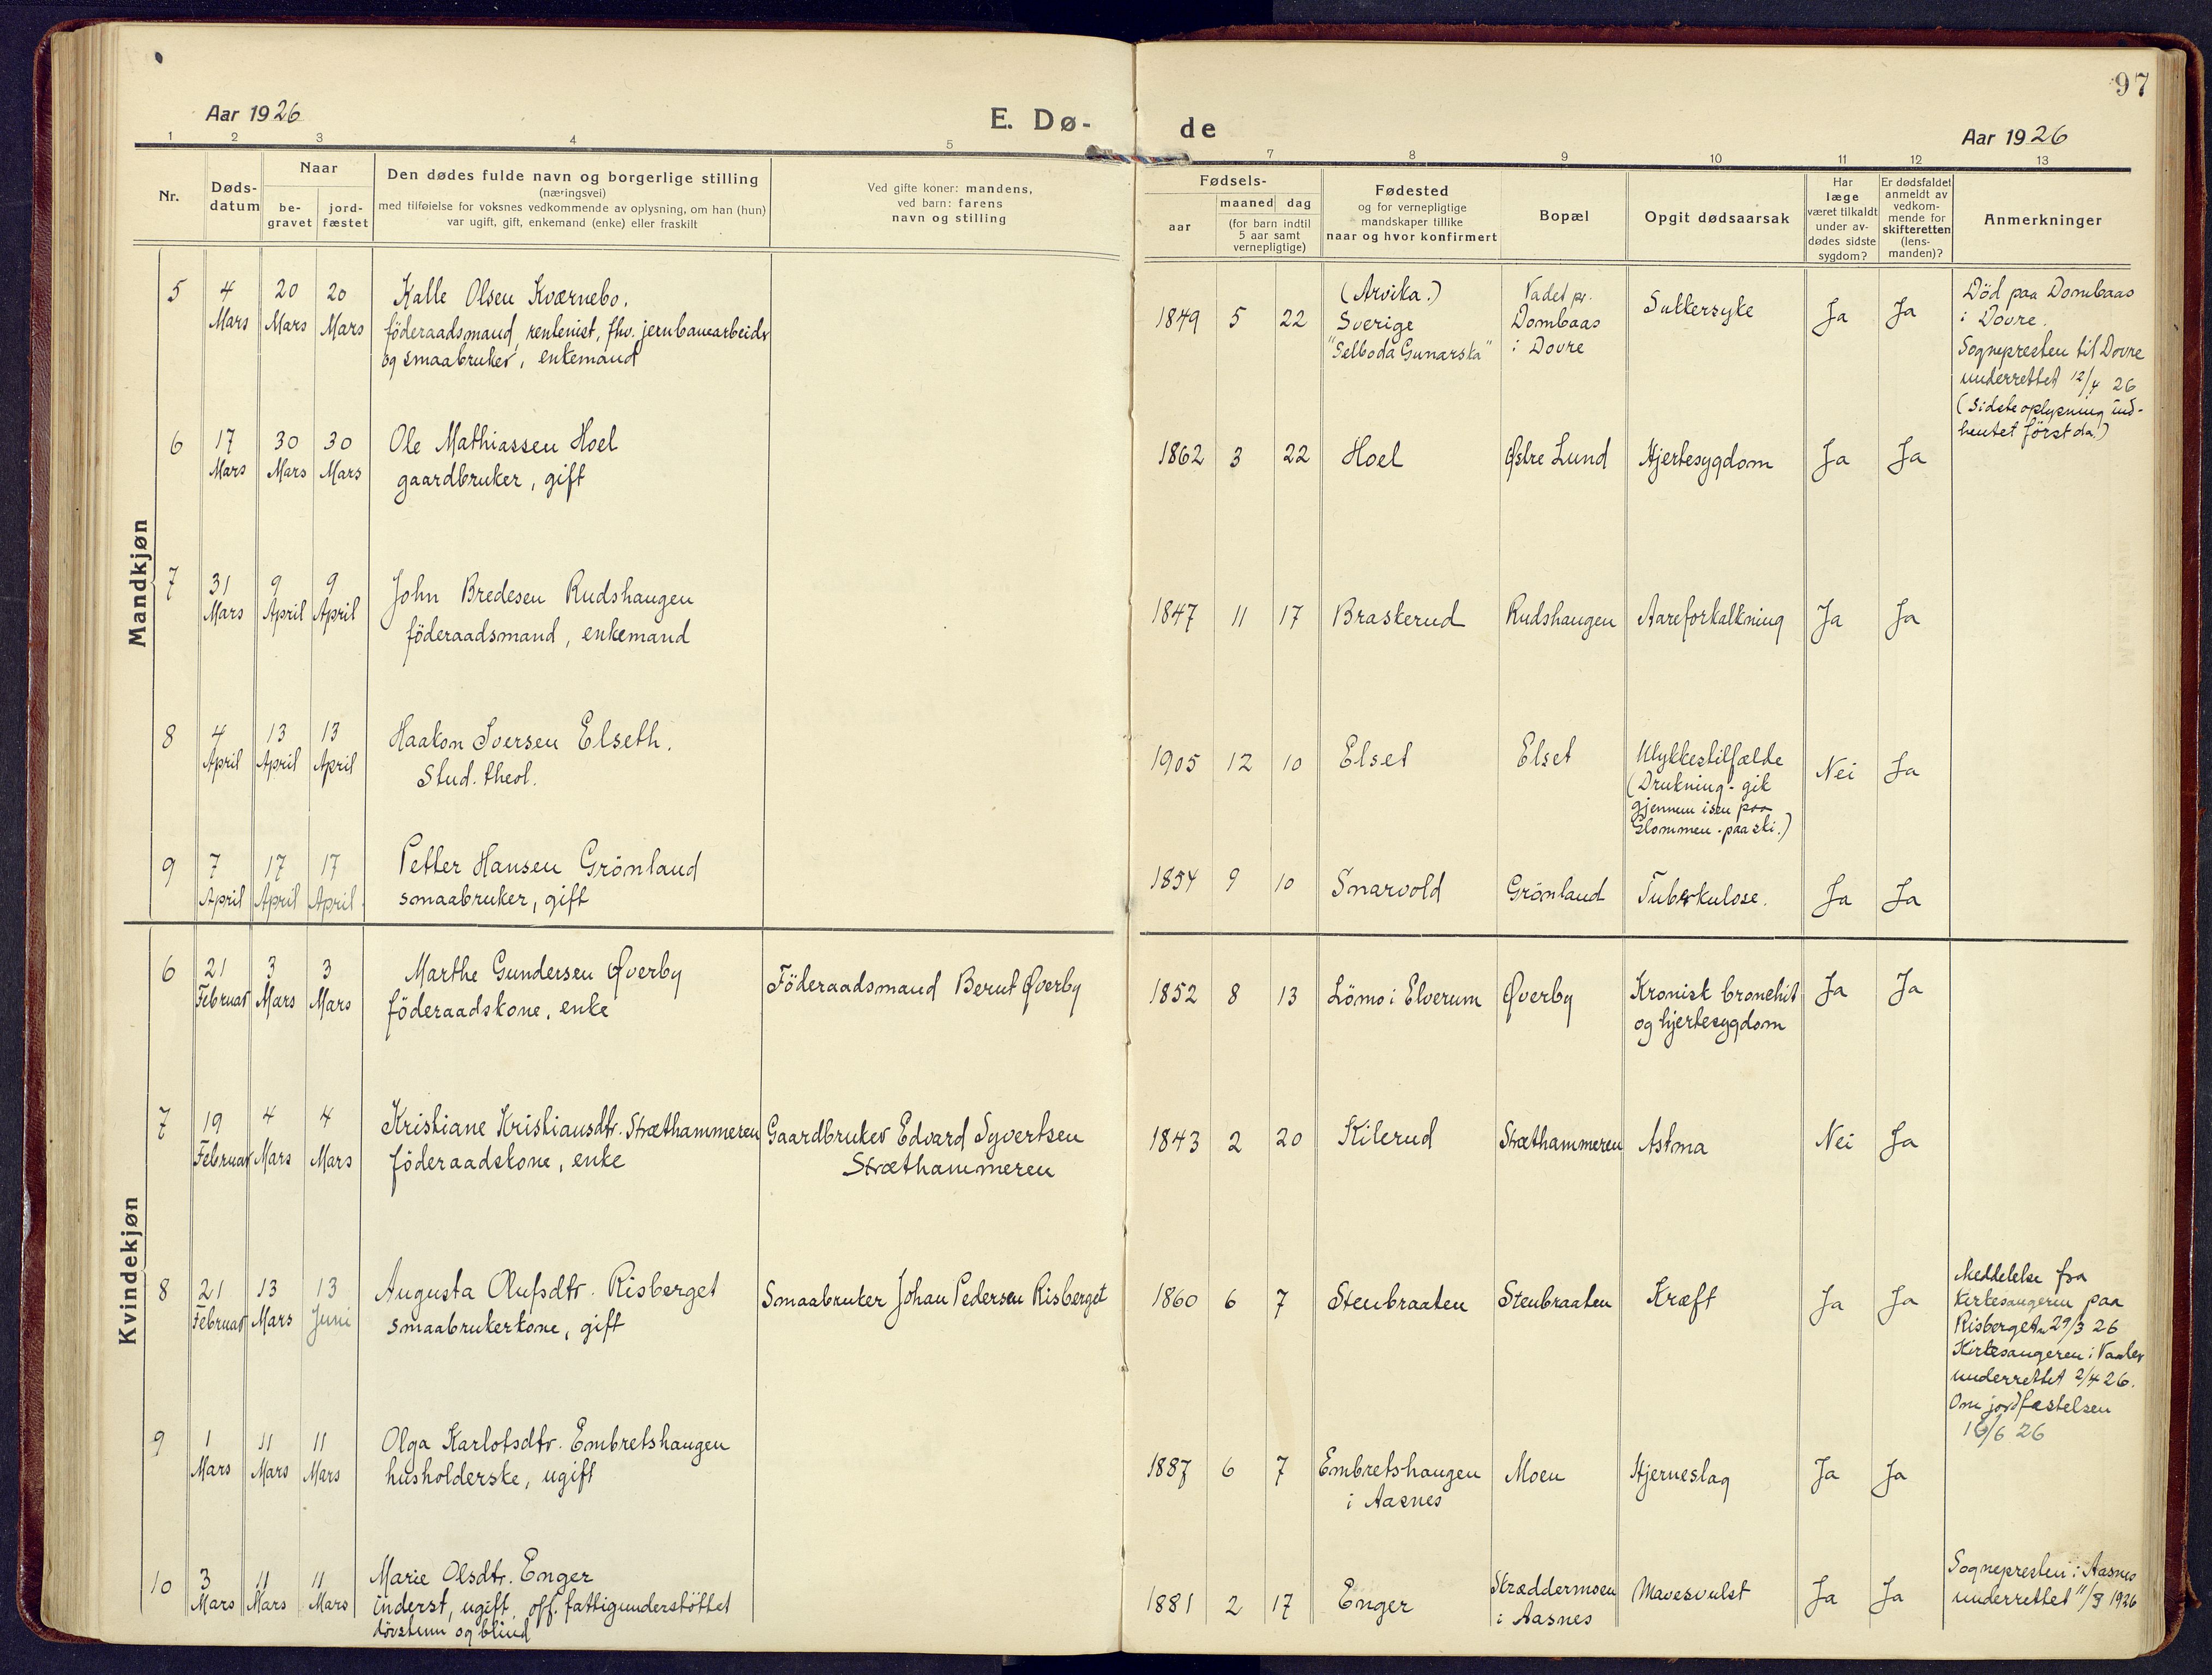 97
Aar 1926
E. Dø-
de
Aar 1926
1 2 3 4 5
7 8 9 10 11 12 13
Nr.
Døds-
datum
Naar
be-
gravet
jord-
fæstet
Den dødes fulde navn og borgerlige stilling
(næringsvei)
med tilføielse for voksnes vedkommende av oplysning, om han (hun)
var ugift, gift, enkemand (enke) eller fraskilt
Ved gifte koner: mandens,
ved barn: farens
navn og stilling
Fødsels-
aar
maaned dag
(for barn indtil
5 aar samt
vernepligtige)
Fødested
og for vernepligtige
mandskaper tillike
naar og hvor konfirmert
Bopæl
Opgit dødsaarsak
Har
læge
været tilkaldt
under av-
dødes sidste
sygdom?
Er dødsfaldet
anmeldt av
vedkom-
mende for
skifteretten
(lens-
manden)?
Anmerkninger
Mandkjøn
5
4
Mars
20
Mars
20
Mars
Kalle Olsen Kværnebo.
föderaadsmand, rentenist, fhv. jernbanearbeider
og smaabruker, enkemand
1849 5 22
(Arvika.)
Sverige
"Selboda Gunarska"
Vadet pr.
Dombaas
i Dovre
Sukkersyke
Ja
Ja
Död paa Dombaas
i Dovre.
Sognepresten til Dovre
underrettet 12/4 26
(Sidste oplysning ind-
hentet först da.)
6
17
Mars
30
Mars
30
Mars
Ole Mathiassen Hoel
gaardbruker, gift
1862 3 22
Hoel
Østre Lund
Hjertesygdom
Ja
Ja
7
31
Mars
9
April
9
April
John Bredesen Rudshaugen
föderaadsmand, enkemand
1847 11 17
Braskerud
Rudshaugen
Aareforkalkning
Ja
Ja
8
4
April
13
April
13
April
Haakon Iversen Elseth.
Stud. theol.
1905 12 10
Elset
Elset
Ulykkestilfælde
(Drukning - gik
gjennem isen paa
Glommen - paa ski.)
Nei
Ja
9
7
April
17
April
17
April.
Petter Hansen Grönland
smaabruker, gift
1854 9 10
Snarvold
Grönland
Tuberkulose.
Ja
Ja
Kvindekjøn
6
21
Februar
3
Mars
3
Mars
Marthe Gundersen Øverby
föderaadskone, enke
Föderaadsmand Bernt Øverby
1852 8 13
Lömo i Elverum
Øverby
Kronisk bronchit
og hjertesygdom
Ja
Ja
7
19
Februar
4
Mars
4
Mars
Kristiane Kristiansdtr. Stræthammeren
föderaadskone, enke
Gaardbruker Edvard Syvertsen
Stræthammeren
1843 2 20
Kilerud
Stræthammeren
Astma
Nei
Ja
8
21
Februar
13
Mars
13
Juni
Augusta Olufsdtr. Risberget
smaabrukerkone, gift
Smaabruker Johan Pedersen Risberget
1860 6 7
Stenbraaten
Stenbraaten
Kræft
Ja
Ja
Meddelelse fra
Kirkesangeren paa
Risberget 29/3 26
Kirkesangeren i Vaaler
underrettet 2/4 26.
Om jordfæstelsen
16/6 26
9
1
Mars
11
Mars
11
Mars
Olga Karlotsdtr. Embretshaugen
husholderske, ugift
1887 6 7
Embretshaugen
i Aasnes
Moen
Hjerneslag
Ja
Ja
10
3
Mars
11
Mars
11
Mars
Marie Olsdtr. Enger
inderst, ugift, off. fattigunderstöttet
dövstum og blind
1881 2 17
Enger
Stræddermoen
i Aasnes
Mavesvulst
Ja
Ja
Sognepresten i Aasnes
underrettet 11/3 1926